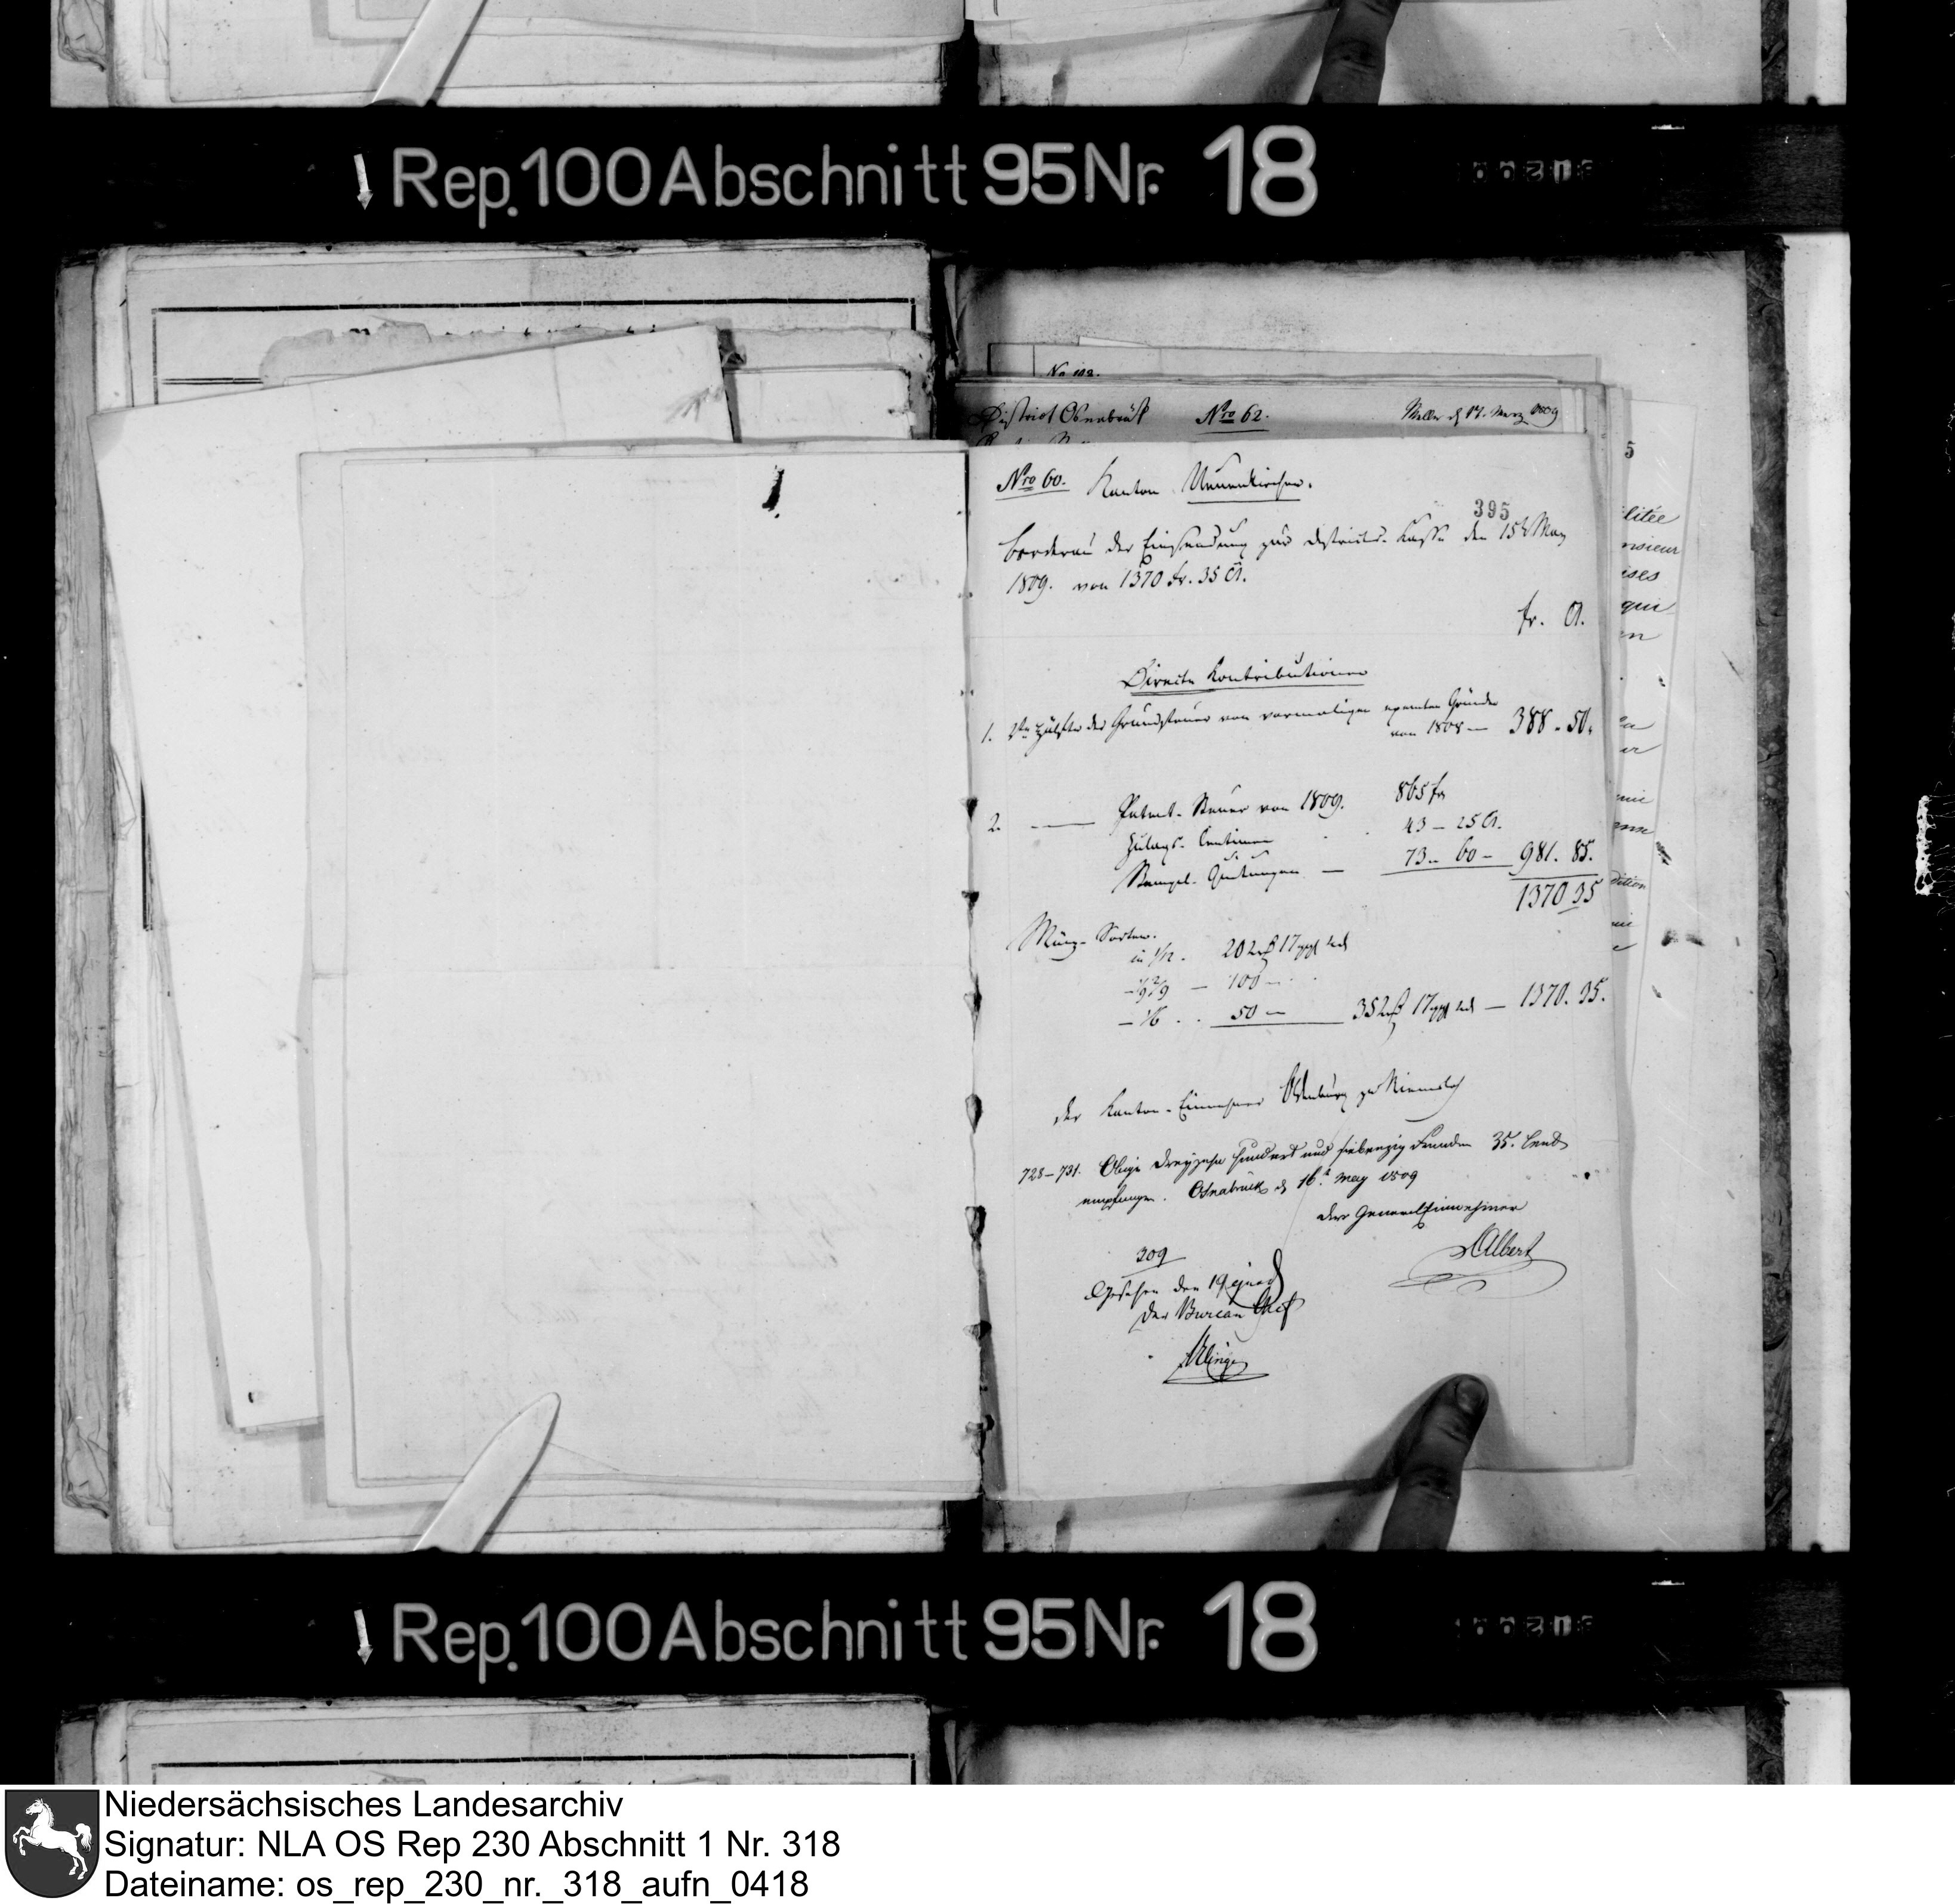 Rep. 100 Abschnitt 95 Nr. 18
No 102.
District Osnabrück Nro 62. Melle d 17. Merz 1809
5
litée
nsieur
ises
qui
en
Nro 60. Kanton Neuenkirchen.
395
Borderau der Einsendung zur Districts-Kasse den 15t May
1809. von 1370 fr. 35 Ct.
fr. Ct.
Directe Kontributionen
1. 2te Hälfte der Grundsteuer von vormaligen exemten Gründen
von 1808 — 388 - 50.
2. —— Patent-Steuer von 1809. 865 fr
Zulags-Centimen 43 - 25 Ct.
Stempel-Quitungen — 73 - 60 - 981. 85.
1370 35
Münz-Sorten.
in 1/12. 202 rthl 17 ggl
100 —
- 1/6 . . 50 — 352 rthl 17 ggl — 1370. 35.
der Kanton-Einnehmer Oldenburg zu Riemsloh
728-731. Obige dreyzehn hundert und siebenzig Franken 35. Cent
empfangen. Osnabrück d 16t May 1809
der GeneralEinnehmer
Albert
209
Gesehen den 19 ejusd
Der Bureau Chef
Klinge
dition
Rep. 100 Abschnitt 95 Nr. 18
Niedersächsisches Landesarchiv
Signatur: NLA OS Rep 230 Abschnitt 1 Nr. 318
Dateiname: os_rep_230_nr._318_aufn_0418